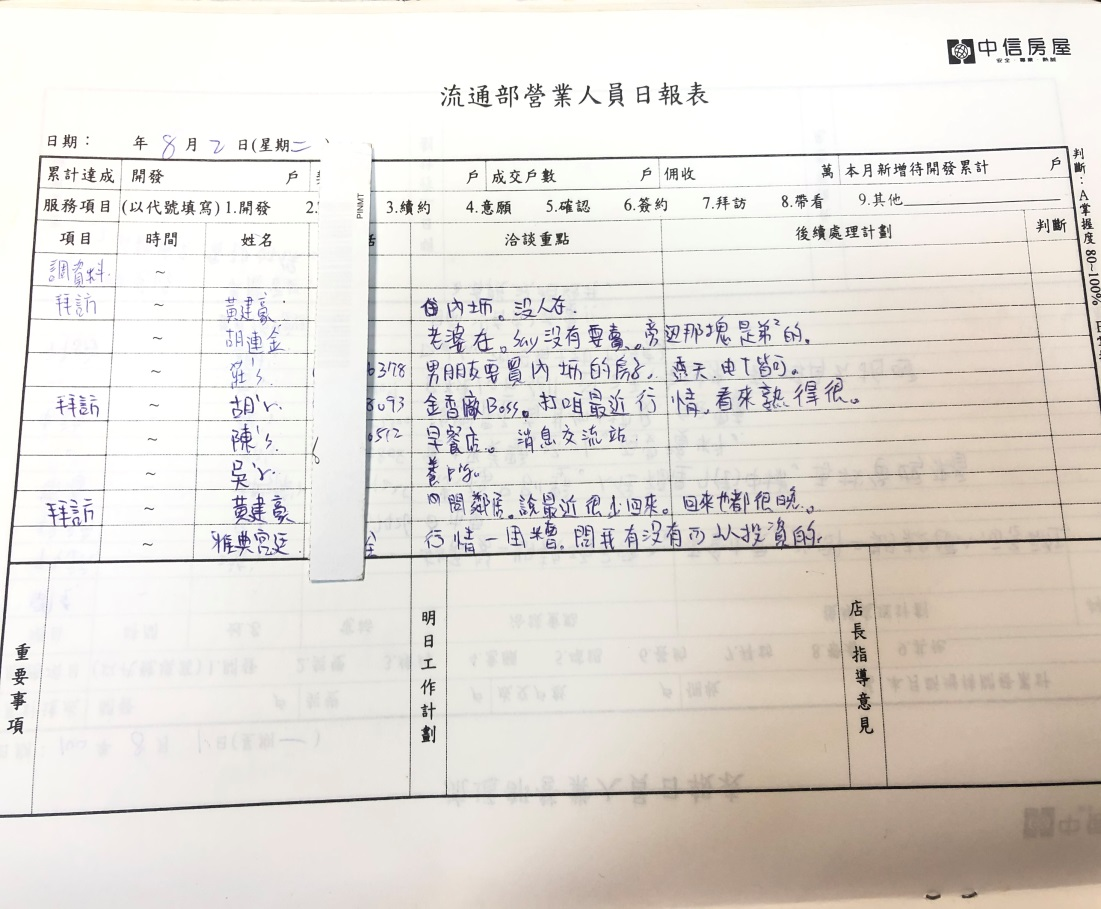 中信房屋
安全·專業·熱誠
流通部營業人員日報表
日期： 年 8 月 2 日(星期二
累計達成 開發 戶 戶 成交戶數 戶 佣收 萬 本月新增待開發累計 戶
服務項目 (以代號填寫) 1.開發 2. 3.續約 4.意願 5.確認 6.簽約 7.拜訪 8.帶看 9.其他
PINMT
項目 時間 姓名 洽談重點 後續處理計劃 判斷
調資料 ~
拜訪 ~ 黃建豪 內坜。沒人在.
~ 胡連金 老婆在。Say沒有要賣。旁边那塊是弟²的.
~ 莊's 6378 男朋友要買內坜的房子. 透天.电T皆可。
拜訪 ~ 胡'r. 8093 金香廠Boss。打咱最近行情,看來熟得很。
~ 陳's 0512 早餐店。消息交流站.
~ 吳'r. 養Pig.
拜訪 ~ 黃建豪 問鄰居。說最近很少回來。回來也都很晚。
~ 雅典宮廷. 金 行情一团糟。問我有沒有可以投資的.
重要事項
明日工作計劃
店長指導意見
判斷：A掌握度80~100%